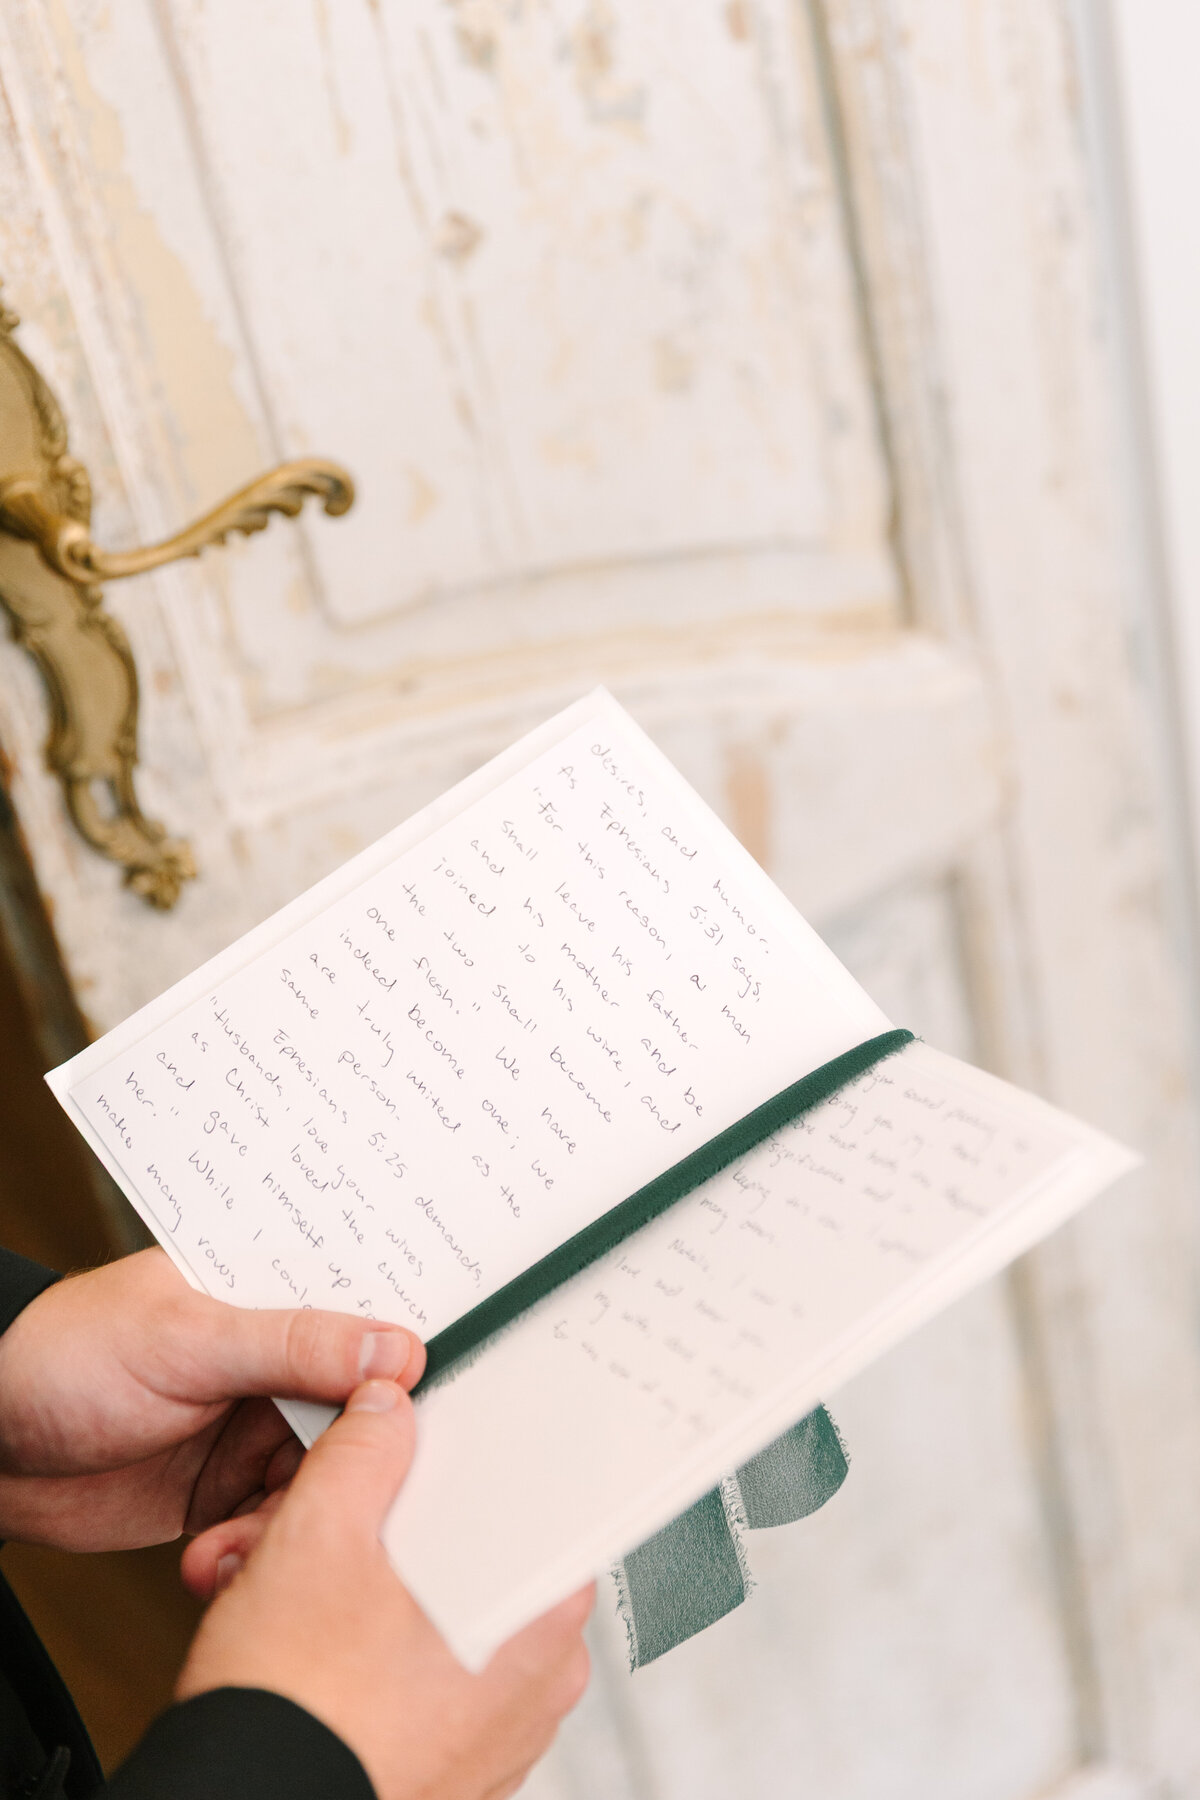 desires, and humor.
As Ephesians 5:31 says,
"For this reason, a man
shall leave his father
and his mother and be
joined to his wife, and
the two shall become
one flesh." We have
indeed become one; we
are truly united as the
same person.
Ephesians 5:25 demands,
"Husbands, love your wives
as Christ loved the church
and gave himself up
her." While I
make many vows
sound
bring you joy
that
significance and
keeping this vow
many years.
Natalie, I vow to
love and honor you
my wife,
for the rest of my